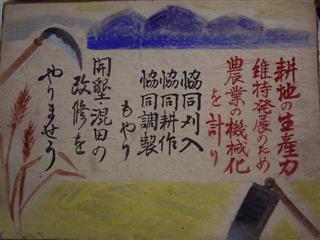 耕地の生産力
維持発展のため
農業の機械化
を計り
協同刈入
協同耕作
協同調製
もやり
開墾混田の
改修を
やりませう